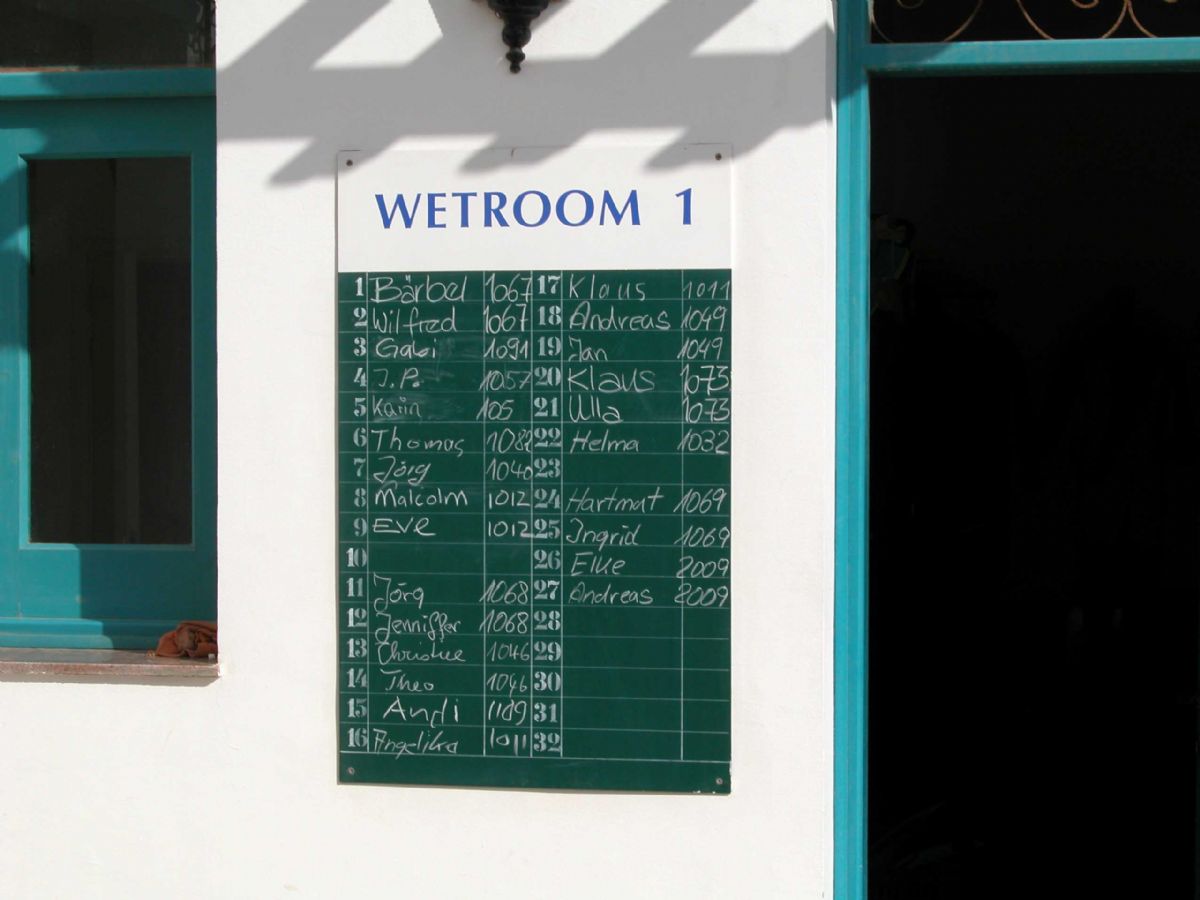 WETROOM 1
1 Bärbel 1067 17 Klaus 1011
2 Wilfred 1067 18 Andreas 1049
3 Gabi 1091 19 Jan 1049
4 J.P. 1057 20 Klaus 1073
5 Karin 105 21 Ulla 1073
6 Thomas 1082 22 Helma 1032
7 Jörg 1040 23
8 Malcolm 1012 24 Hartmut 1069
9 EVE 1012 25 Ingrid 1069
10 26 Elke 2009
11 Jörg 1068 27 Andreas 2009
12 Jenniffer 1068 28
13 Christine 1046 29
14 Theo 1046 30
15 Andi 1189 31
16 Angelika 1011 32